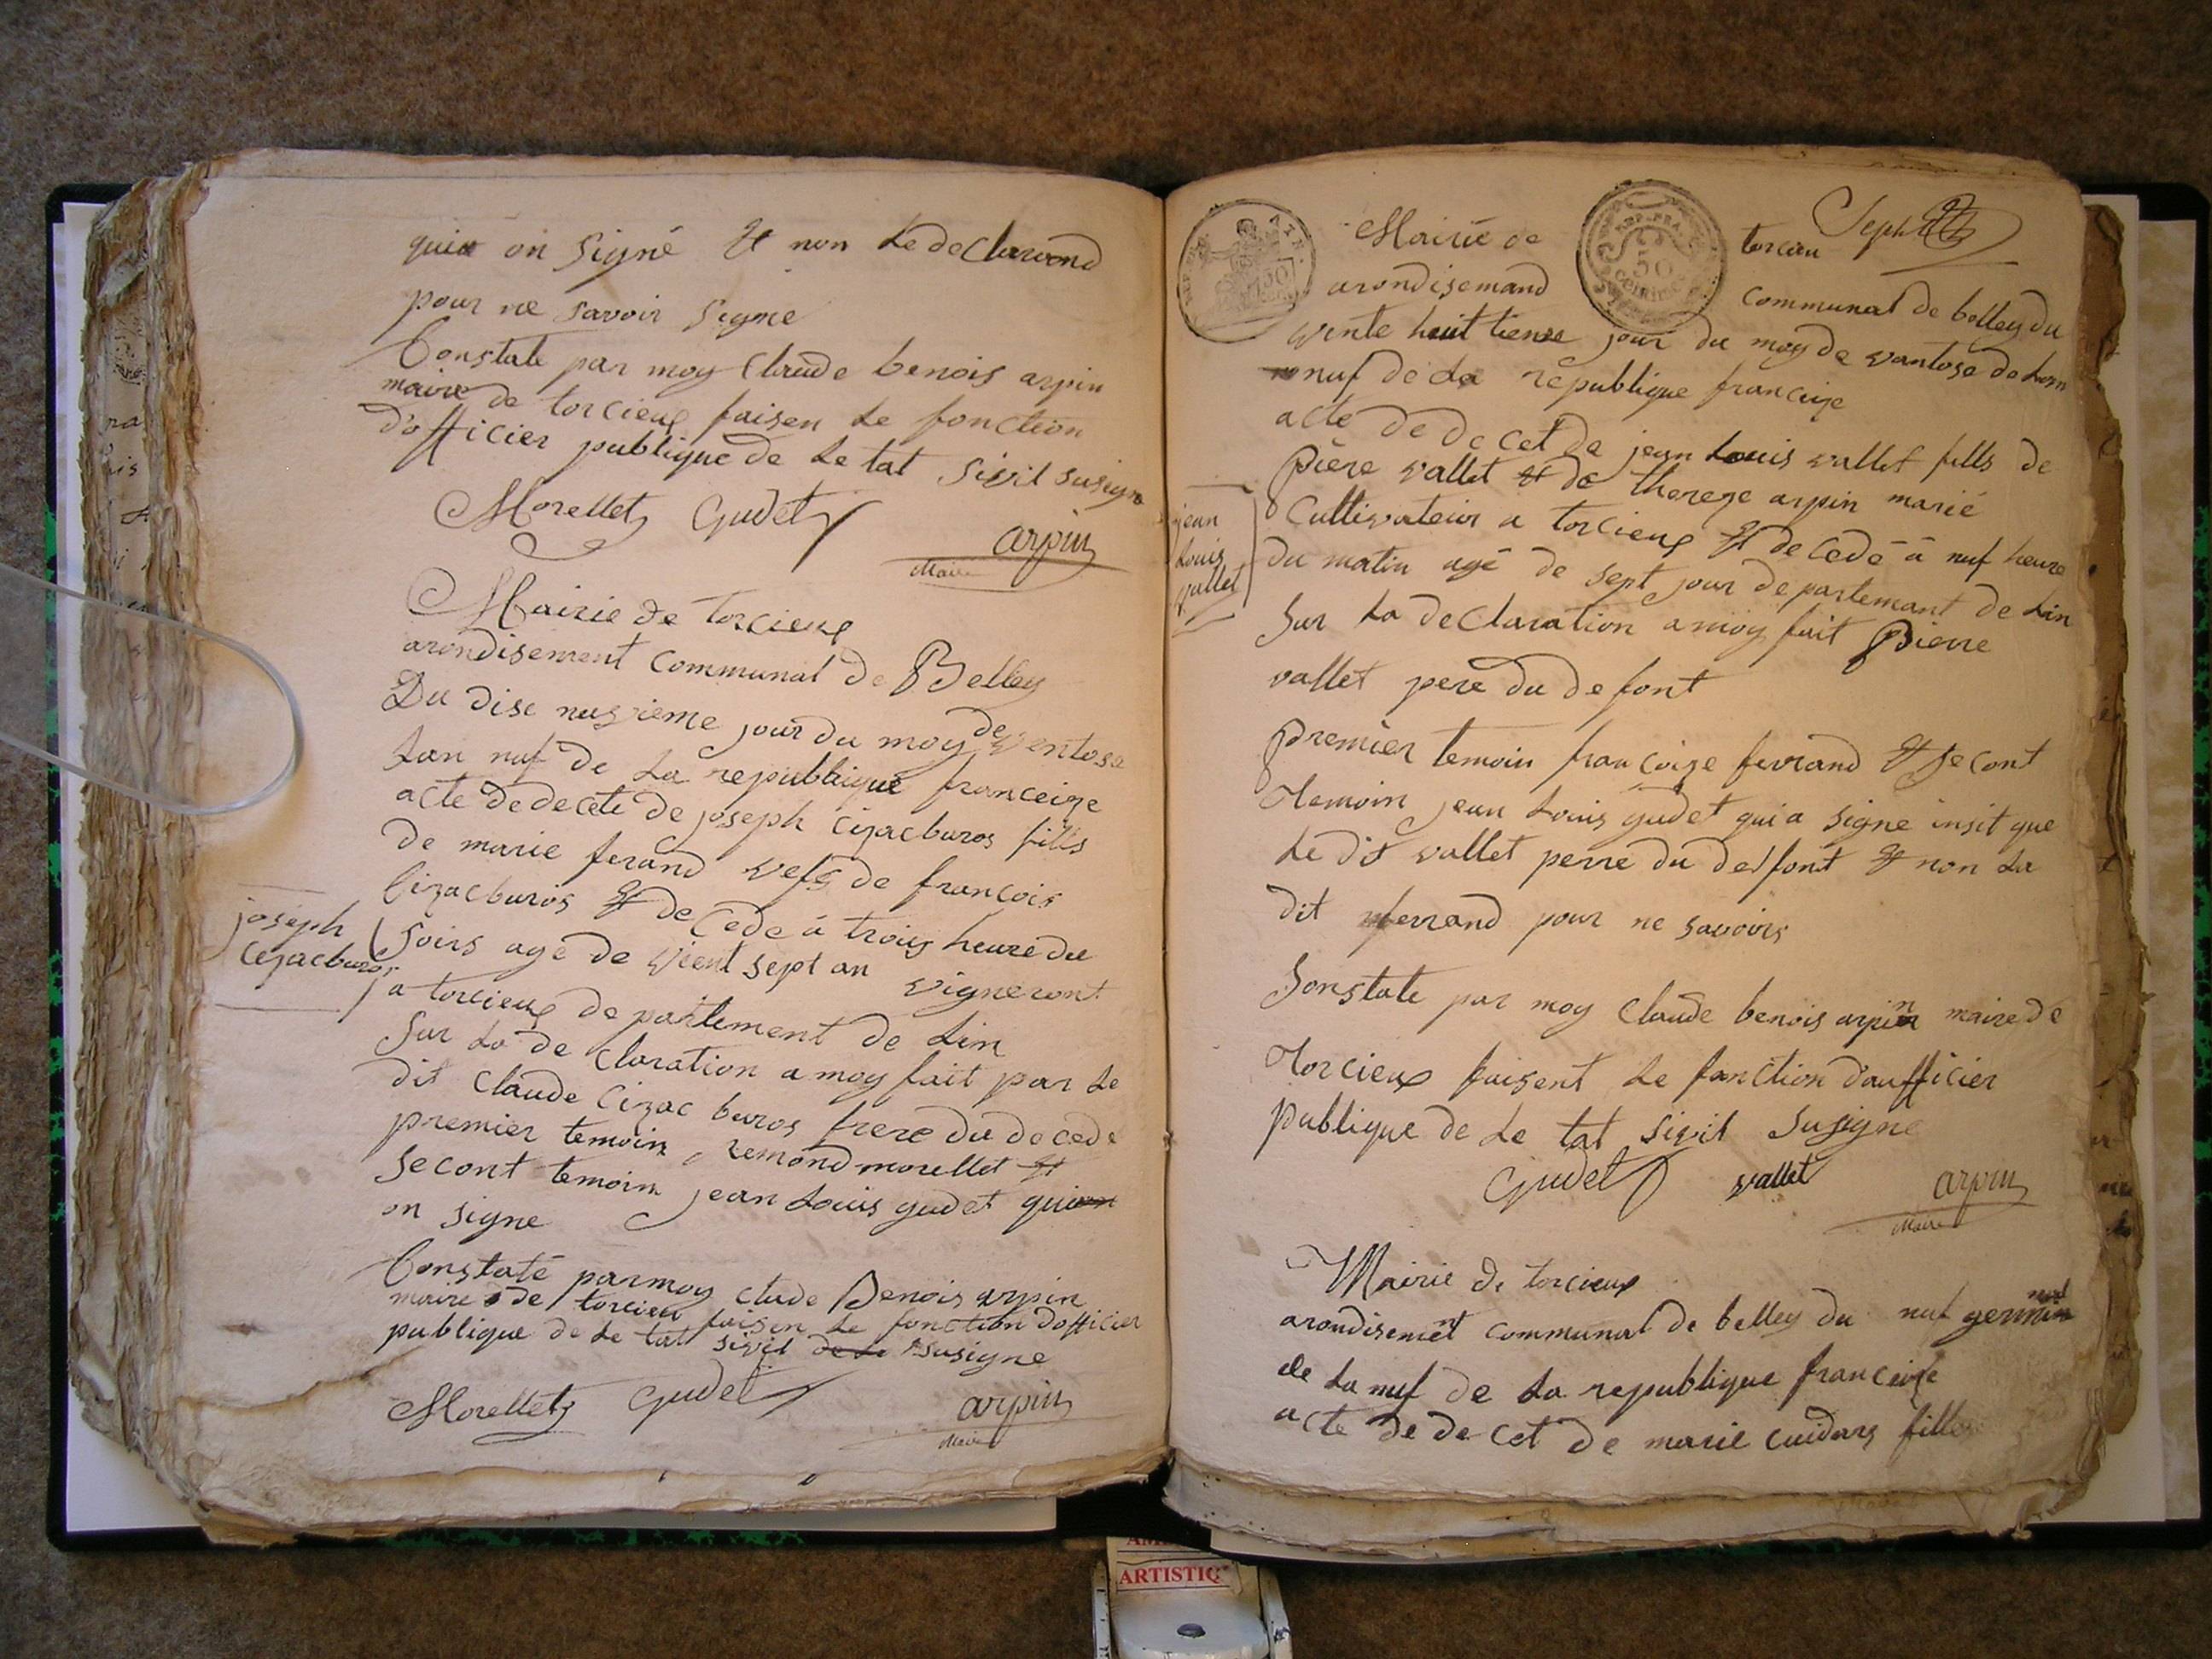 quia on signé et non le declarond
pour ne savoir signe
Constate par moy Claude benois arpin
maire de torcieux faisen le fonction
d'officier publique de le tat sivil susigne
Morellet gudet
arpin
Maire
Mairie de torcieux
arondisement Communal de Belley
Du dise nufvieme jour du moy de ventose
lan nuf de la republique franceize
acte de decete de joseph cizacburos fills
de marie ferand vefe de francois
Cizacburos et de Cede á trois heure du
joseph
Cezacburos
soirs age de vient sept an vigneront
a torcieux de partement de Lin
Sur la de claration a moy fait par le
dit Claude Cizac buros frere du de cede
premier temoin remond morellet et
secont temoin jean Louis gudet qui
on signe
Constaté par moy clude Benois arpin
maire de torcieu faisen le fonction dofficier
publique de le tat sivil de le susigne
Morellet gudet
arpin
Maire
Mairie de torcieu
REP. FRA.
50
CENTIMES
arondisemand communal de belley du
vente huit tieme jour du moy de vantose de Lan
nuf de la republique franceize
acte de de cet de jean Louis vallet fills de
pière vallet et de thereze arpin marié
jean
Louis
vallet
Cultivateur a torcieux et de cedé á nuf heure
du matin agé de sept jour de partemant de Lin
Sur la declaration a moy fait Pierre
vallet pere du defont
premier temoin francoize ferrand et secont
temoin jean Louis gudet qui a signe insit que
le dit vallet perre du defont et non la
dit ferrand pour ne savoirs
Constate par moy Claude benois arpin maire de
torcieux faisent le fonction daufficier
publique de le tat sivil susigne
gudet vallet arpin
Maire
Mairie de torcieux
arondisement communal de belley du nuf germinal
de La nuf de la republique franceize
acte de de cet de marie cuidars fille